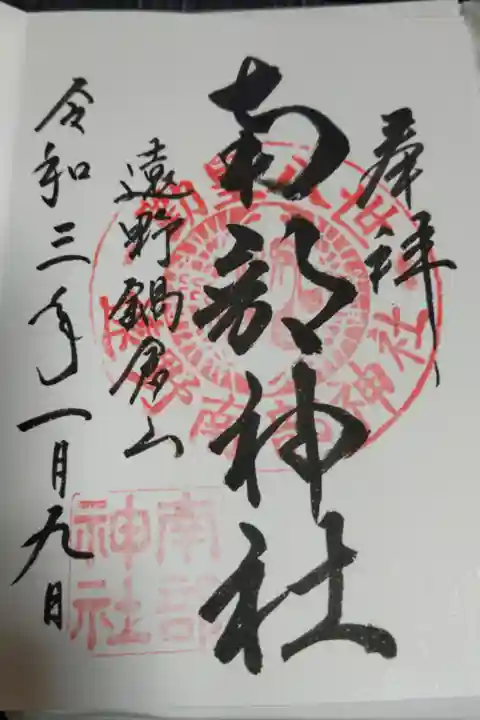 奉拝
南部神社
遠野鍋倉山
令和三年一月九日
南部
神社